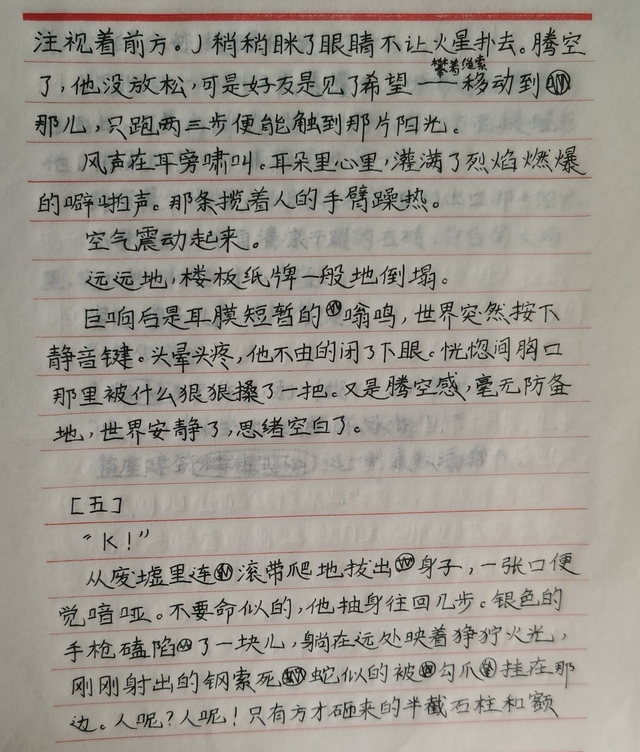 注视着前方。J稍稍眯了眼睛不让火星扑去。腾空
了，他没放松，可是好友是见了希望——攀着绳索移动到
那儿，只跑两三步便能触到那片阳光。
风声在耳旁啸叫。耳朵里心里，灌满了烈焰燃爆
的噼啪声。那条揽着人的手臂躁热。
空气震动起来。
远远地，楼板纸牌一般地倒塌。
巨响后是耳膜短暂的嗡鸣，世界突然按下
静音键。头晕头疼，他不由的闭了下眼。恍惚间胸口
那里被什么狠狠搡了一把。又是腾空感，毫无防备
地，世界安静了，思绪空白了。
[五]
“K！”
从废墟里连滚带爬地拔出身子，一张口便
觉喑哑。不要命似的，他抽身往回几步。银色的
手枪磕陷了一块儿，躺在远处映着狰狞火光，
刚刚射出的钢索死蛇似的被勾爪挂在那
边。人呢？人呢！只有方才砸来的半截石柱和额